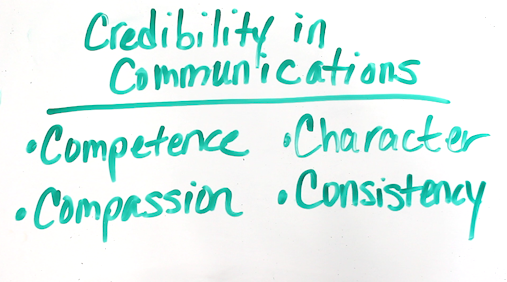 Credibility in
Communications
•Competence •Character
•Compassion •Consistency